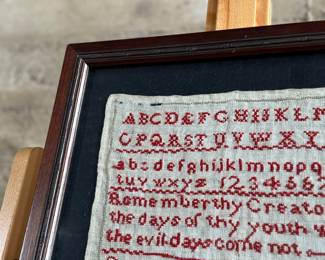 ABCDEFGHIJKLM
OPQRSTUVWXY
abcdefghijklmnopq
tuvwxyz 1234567
Remember thy Creato
the days of thy youth w
the evil days come not